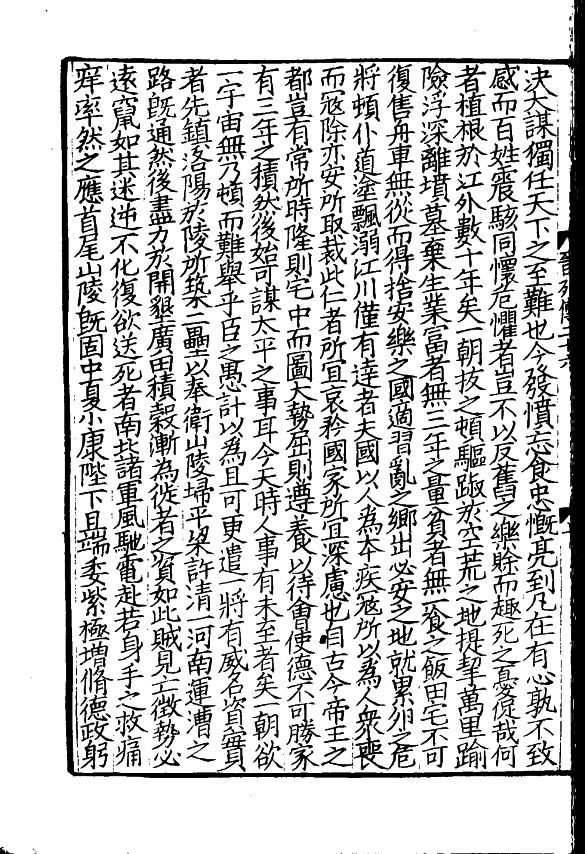 決大謀獨任天下之至難也今發憤忘食忠慨亮到凡在有心孰不致
感而百姓震駭同懷危懼者豈不以反舊之樂賖而趣死之憂促哉何
者植根於江外數十年矣一朝拔之頓驅踧於空荒之地提挈萬里踰
險浮深離墳墓棄生業富者無三年之量貧者無一飡之飯田宅不可
復售舟車無從而得捨安樂之國適習亂之鄉出必安之地就累卵之危
將頓仆道塗飄溺江川僅有達者夫國以人為本疾寇所以為人衆喪
而寇除亦安所取裁此仁者所宜哀矜國家所宜深慮也自古今帝王之
都豈有常所時隆則宅中而圖大勢屈則遵養以待會使德不可勝家
有三年之積然後始可謀太平之事耳今天時人事有未至者矣一朝欲
一宇宙無乃頓而難舉乎臣之愚計以為且可更遣一將有威名資實
者先鎮洛陽於陵所築二壘以奉衛山陵埽平梁許清一河南運漕之
路旣通然後盡力於開墾廣田積穀漸為徙者之資如此賊見亡徵勢必
逺竄如其迷逆不化復欲送死者南北諸軍風馳電赴若身手之救痛
痒率然之應首尾山陵旣固中夏小康陛下且端委紫極增脩德政躬